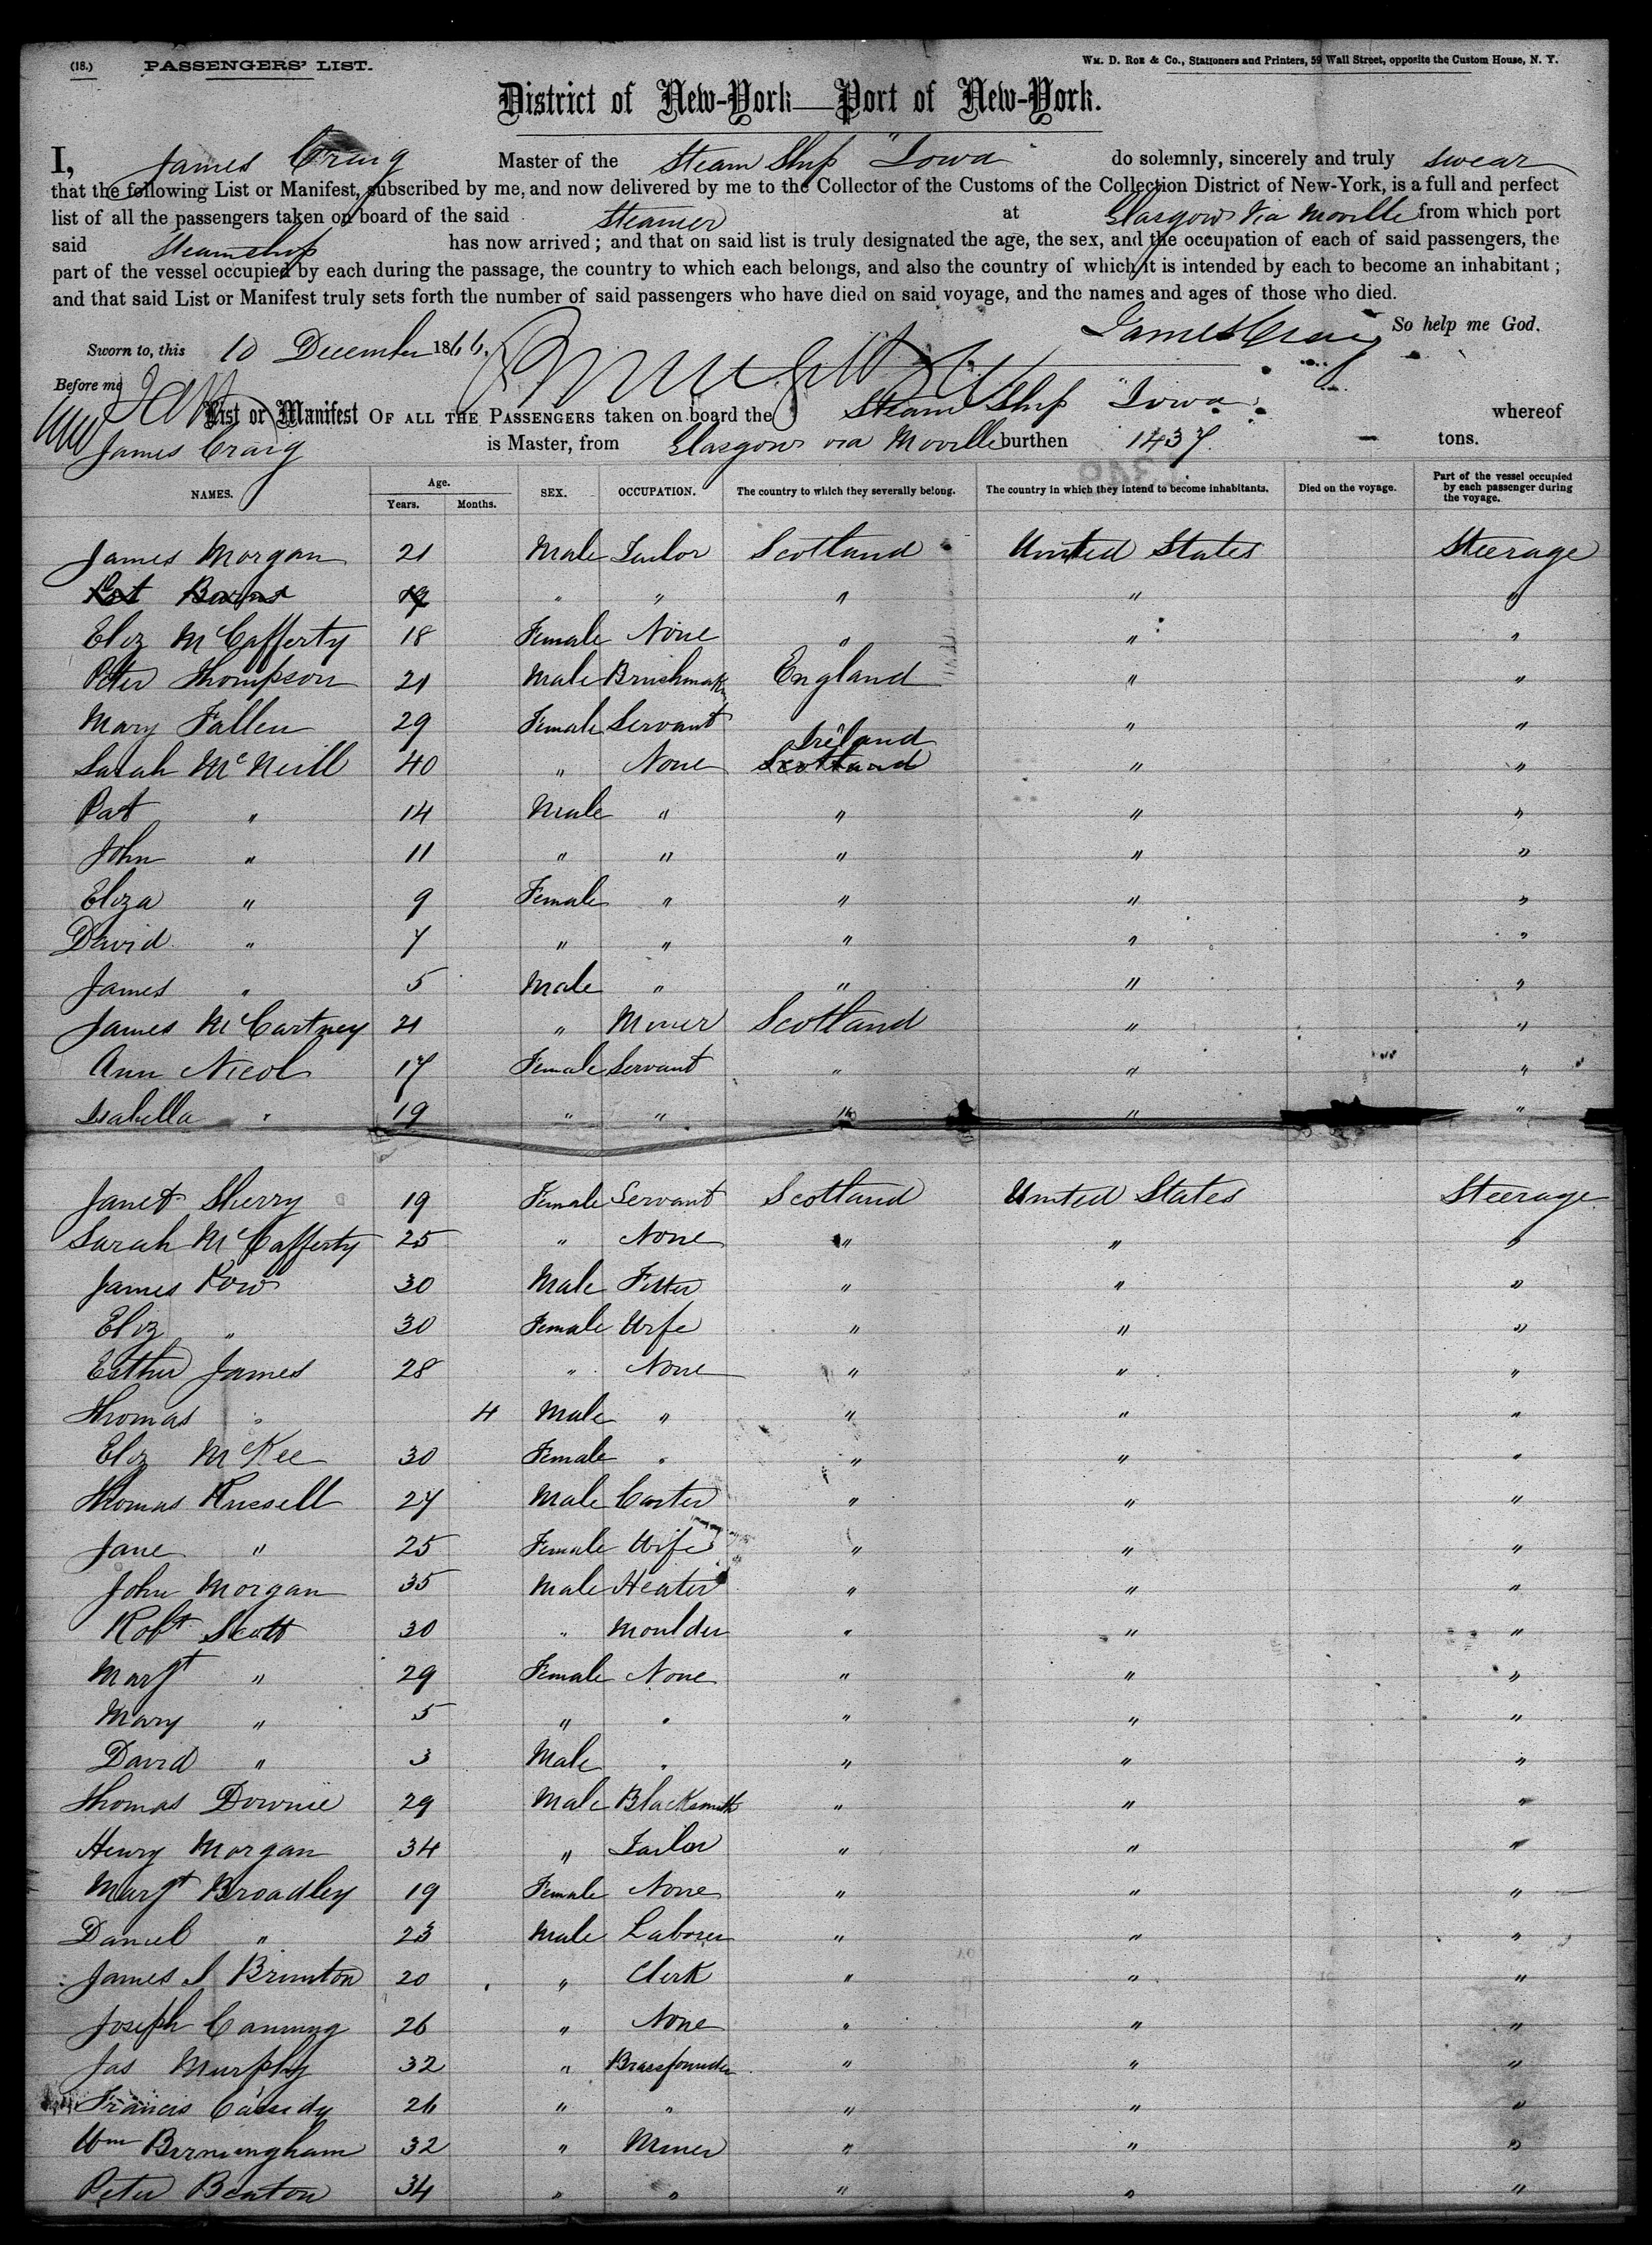 (18.) PASSENGERS' LIST. Wm. D. Roe & Co., Stationers and Printers, 59 Wall Street, opposite the Custom House, N. Y.
District of New-York—Port of New-York.
I, James Craig Master of the Steam Ship "Iowa do solemnly, sincerely and truly swear
that the following List or Manifest, subscribed by me, and now delivered by me to the Collector of the Customs of the Collection District of New-York, is a full and perfect
list of all the passengers taken on board of the said Steamer at Glasgow via Moville from which port
said Steamship has now arrived; and that on said list is truly designated the age, the sex, and the occupation of each of said passengers, the
part of the vessel occupied by each during the passage, the country to which each belongs, and also the country of which it is intended by each to become an inhabitant;
and that said List or Manifest truly sets forth the number of said passengers who have died on said voyage, and the names and ages of those who died.
James Craig So help me God.
Sworn to, this 10 December 1866.
Before me
List or Manifest OF ALL THE PASSENGERS taken on board the Steam Ship "Iowa" whereof
James Craig is Master, from Glasgow via Moville burthen 1437 tons.
NAMES. Age. Years. Months. SEX. OCCUPATION. The country to which they severally belong. The country in which they intend to become inhabitants. Died on the voyage. Part of the vessel occupied by each passenger during the voyage.
James Morgan 21 Male Tailor Scotland United States Steerage
Pat Burns 19 " " " " "
Eliz McCafferty 18 Female None " " "
Peter Thompson 21 Male Brushmaker England " "
Mary Fallen 29 Female Servant " " "
Ireland
Sarah McNeill 40 " None Scotland " "
Pat " 14 Male " " " "
John " 11 " " " " "
Eliza " 9 Female " " " "
David " 7 " " " " "
James " 5 Male " " " "
James McCartney 21 " Miner Scotland " "
Ann Nicol 17 Female Servant " " "
Isabella " 19 " " " " "
Janet Sherry 19 Female Servant Scotland United States Steerage
Sarah McCafferty 25 " None " " "
James Row 30 Male Fitter " " "
Eliz " 30 Female Wife " " "
Esther James 28 " None " " "
Thomas " 4 Male " " " "
Eliz McKee 30 Female " " " "
Thomas Russell 27 Male Carter " " "
Jane " 25 Female Wife " " "
John Morgan 35 Male Heater " " "
Robt Scott 30 " Moulder " " "
Margt " 29 Female None " " "
Mary " 5 " " " " "
David " 3 Male " " " "
Thomas Downie 29 Male Blacksmith " " "
Henry Morgan 34 " Tailor " " "
Margt Broadley 19 Female None " " "
Daniel " 23 Male Laborer " " "
James S Brunton 20 " Clerk " " "
Joseph Canning 26 " None " " "
Jas Murphy 32 " Brassfounder " " "
Francis Cassidy 26 " " " " "
Wm Birmingham 32 " Miner " " "
Peter Beaton 34 " " " " "